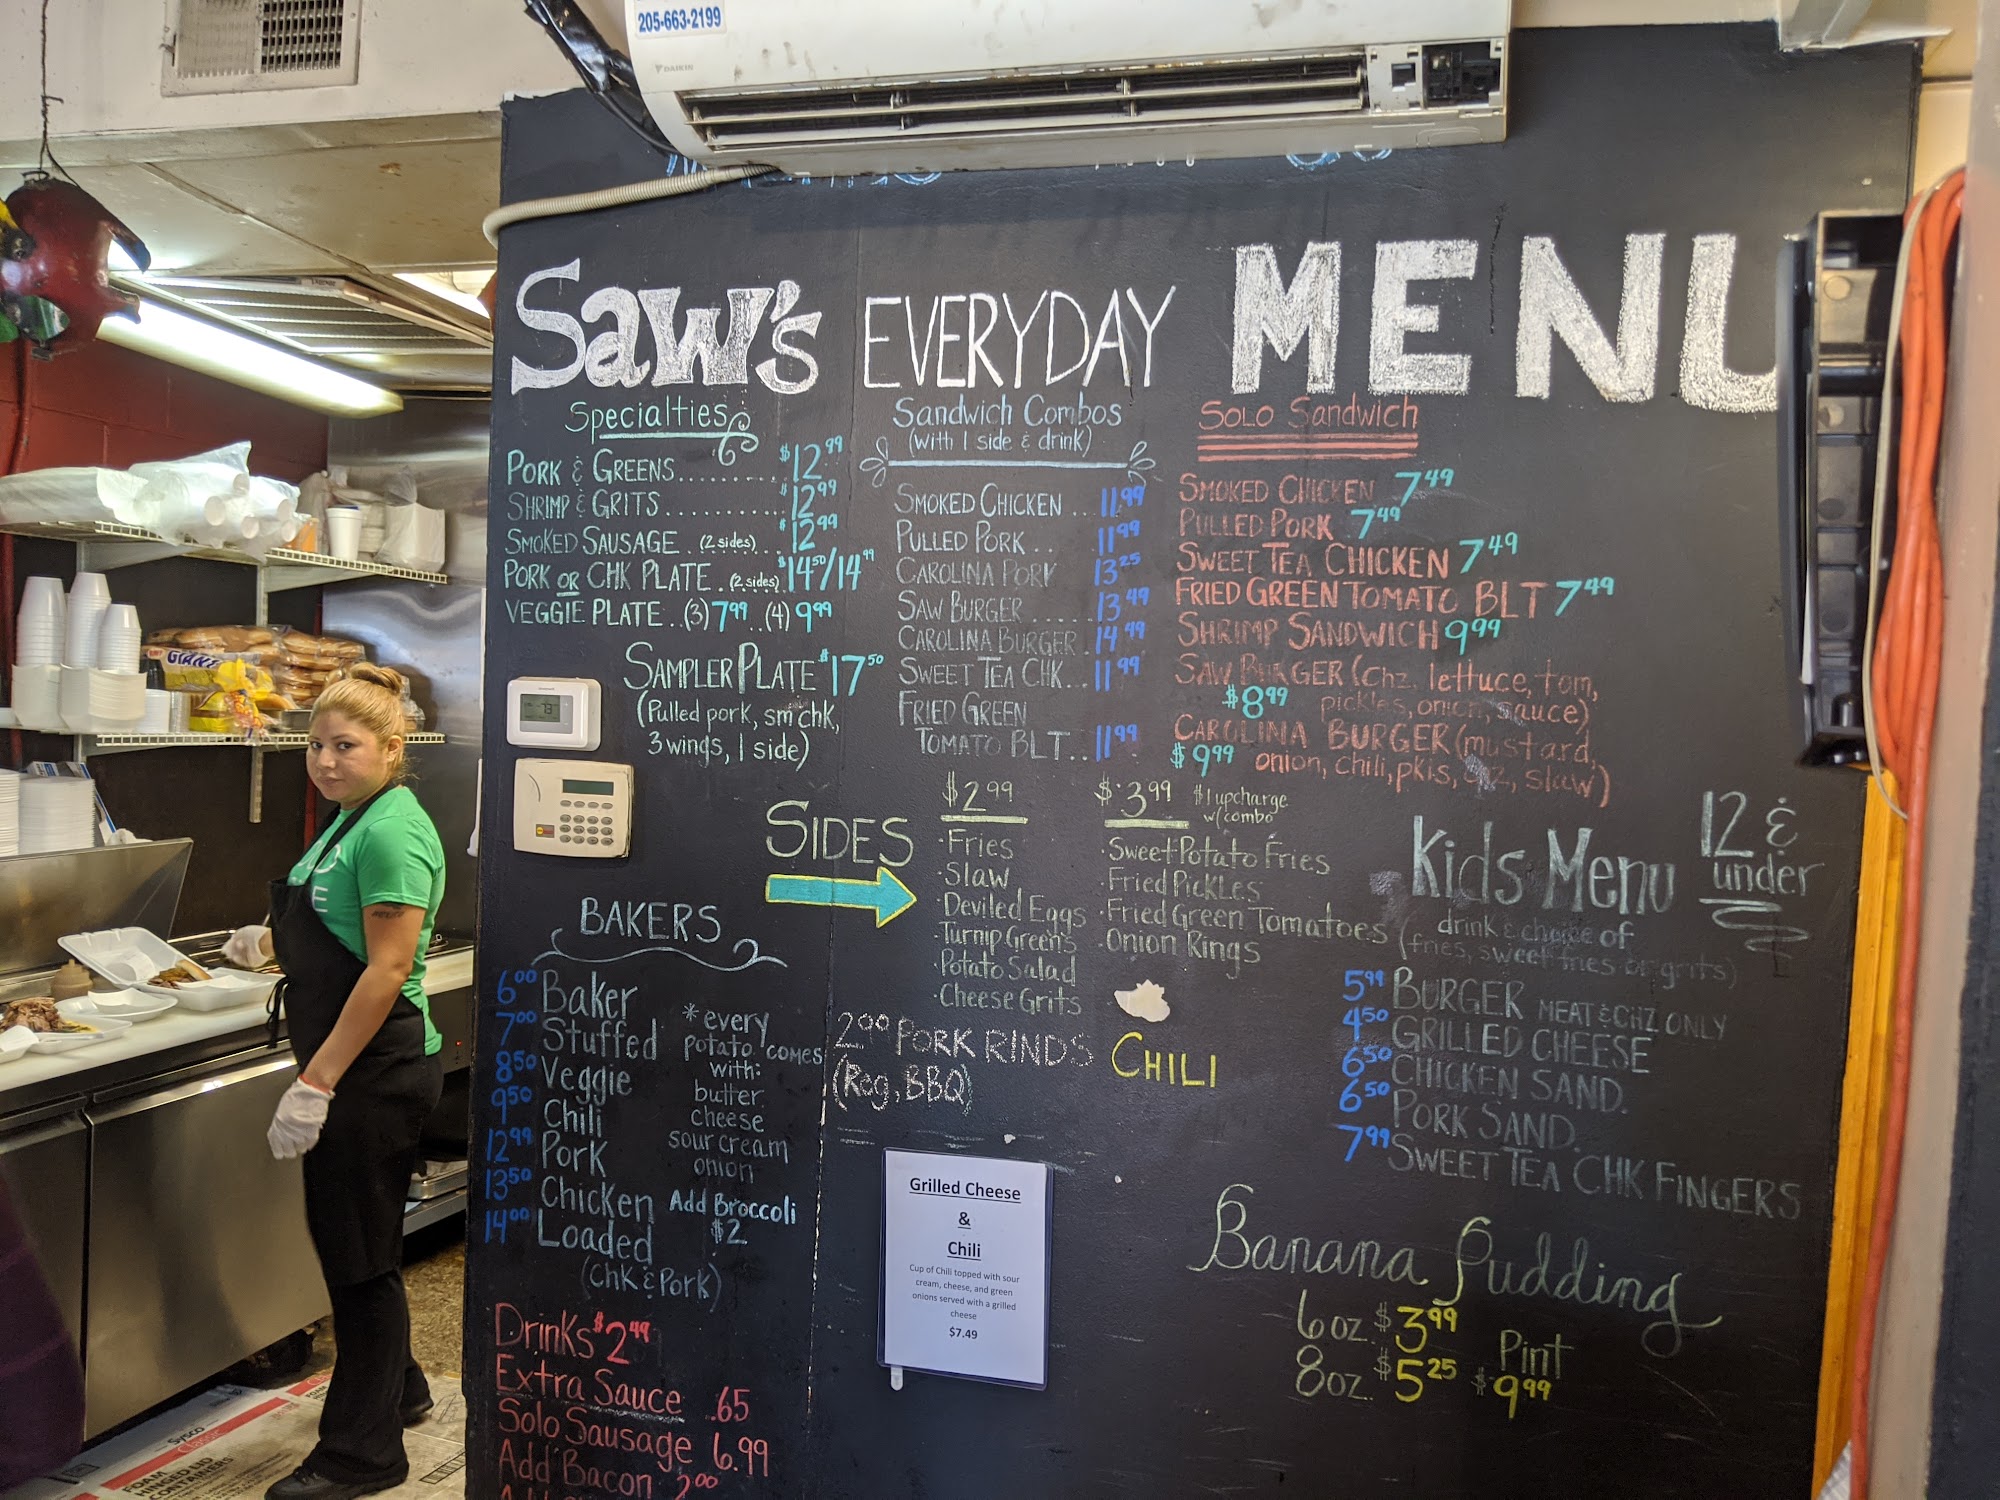 205-663-2199
DAIKIN
Saw's EVERYDAY MENU
Specialties
PORK & GREENS......... $12.99
SHRIMP & GRITS........... $12.99
SMOKED SAUSAGE..(2 sides)... $12.99
PORK OR CHK PLATE..(2 sides) $14.50/14.99
VEGGIE PLATE..(3) 7.99...(4) 9.99
SAMPLER PLATE $17.50
(Pulled pork, sm chk,
3 wings, 1 side)
Sandwich Combos
(with 1 side & drink)
SMOKED CHICKEN ... 11.99
PULLED PORK... 11.99
CAROLINA PORK 13.25
SAW BURGER ..... 13.49
CAROLINA BURGER . 14.49
SWEET TEA CHK... 11.99
FRIED GREEN
TOMATO BLT.. 11.99
SOLO Sandwich
SMOKED CHICKEN 7.49
PULLED PORK 7.49
SWEET TEA CHICKEN 7.49
FRIED GREEN TOMATO BLT 7.49
SHRIMP SANDWICH 9.99
SAW BURGER (chz, lettuce, tom,
$8.99 pickles, onion, sauce)
CAROLINA BURGER (mustard,
$9.99 onion, chili, pkls, chz, slaw)
SIDES
$2.99
·Fries
·Slaw
·Deviled Eggs
·Turnip Greens
·Potato Salad
·Cheese Grits
$3.99 $1 upcharge
w/combo
·Sweet Potato Fries
·Fried Pickles
·Fried Green Tomatoes
·Onion Rings
2.00 PORK RINDS
(Reg, BBQ)
CHILI
BAKERS
6.00 Baker
7.00 Stuffed
8.50 Veggie
9.50 Chili
12.99 Pork
13.50 Chicken
14.00 Loaded
(Chk & Pork)
*every
potato comes
with:
butter
cheese
sour cream
onion
Add Broccoli
$2
Drinks $2.49
Extra Sauce .65
Solo Sausage 6.99
Add Bacon 2.00
Grilled Cheese
&
Chili
Cup of Chili topped with sour
cream, cheese, and green
onions served with a grilled
cheese
$7.49
Kids Menu 12 &
under
(drink & choice of
fries, sweet fries or grits)
5.99 BURGER MEAT & CHZ ONLY
4.50 GRILLED CHEESE
6.50 CHICKEN SAND.
6.50 PORK SAND.
7.99 SWEET TEA CHK FINGERS
Banana Pudding
6 oz. $3.99
8 oz. $5.25
Pint
$9.99
GIANT
Sysco
Classic
FOAM
HINGED LID
CONTAINERS